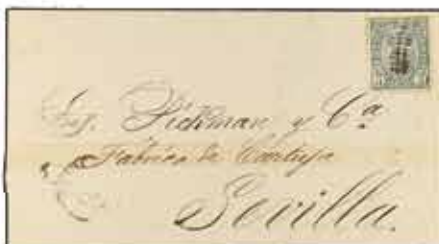 Sres. Pickman y Cª
Fábrica de Cartuja
Sevilla.